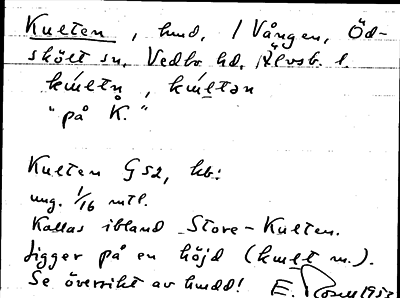 Kulten, hmd, / Vången, Öd-
skölt sn, Vedbo hd, Älvsb. l.
"på K."
Kulten G s2, hb:
ung. 1/16 mtl.
Kallas ibland Store-Kulten.
Ligger på en höjd (kult m.).
Se översikt av hmdd! E. Rosell